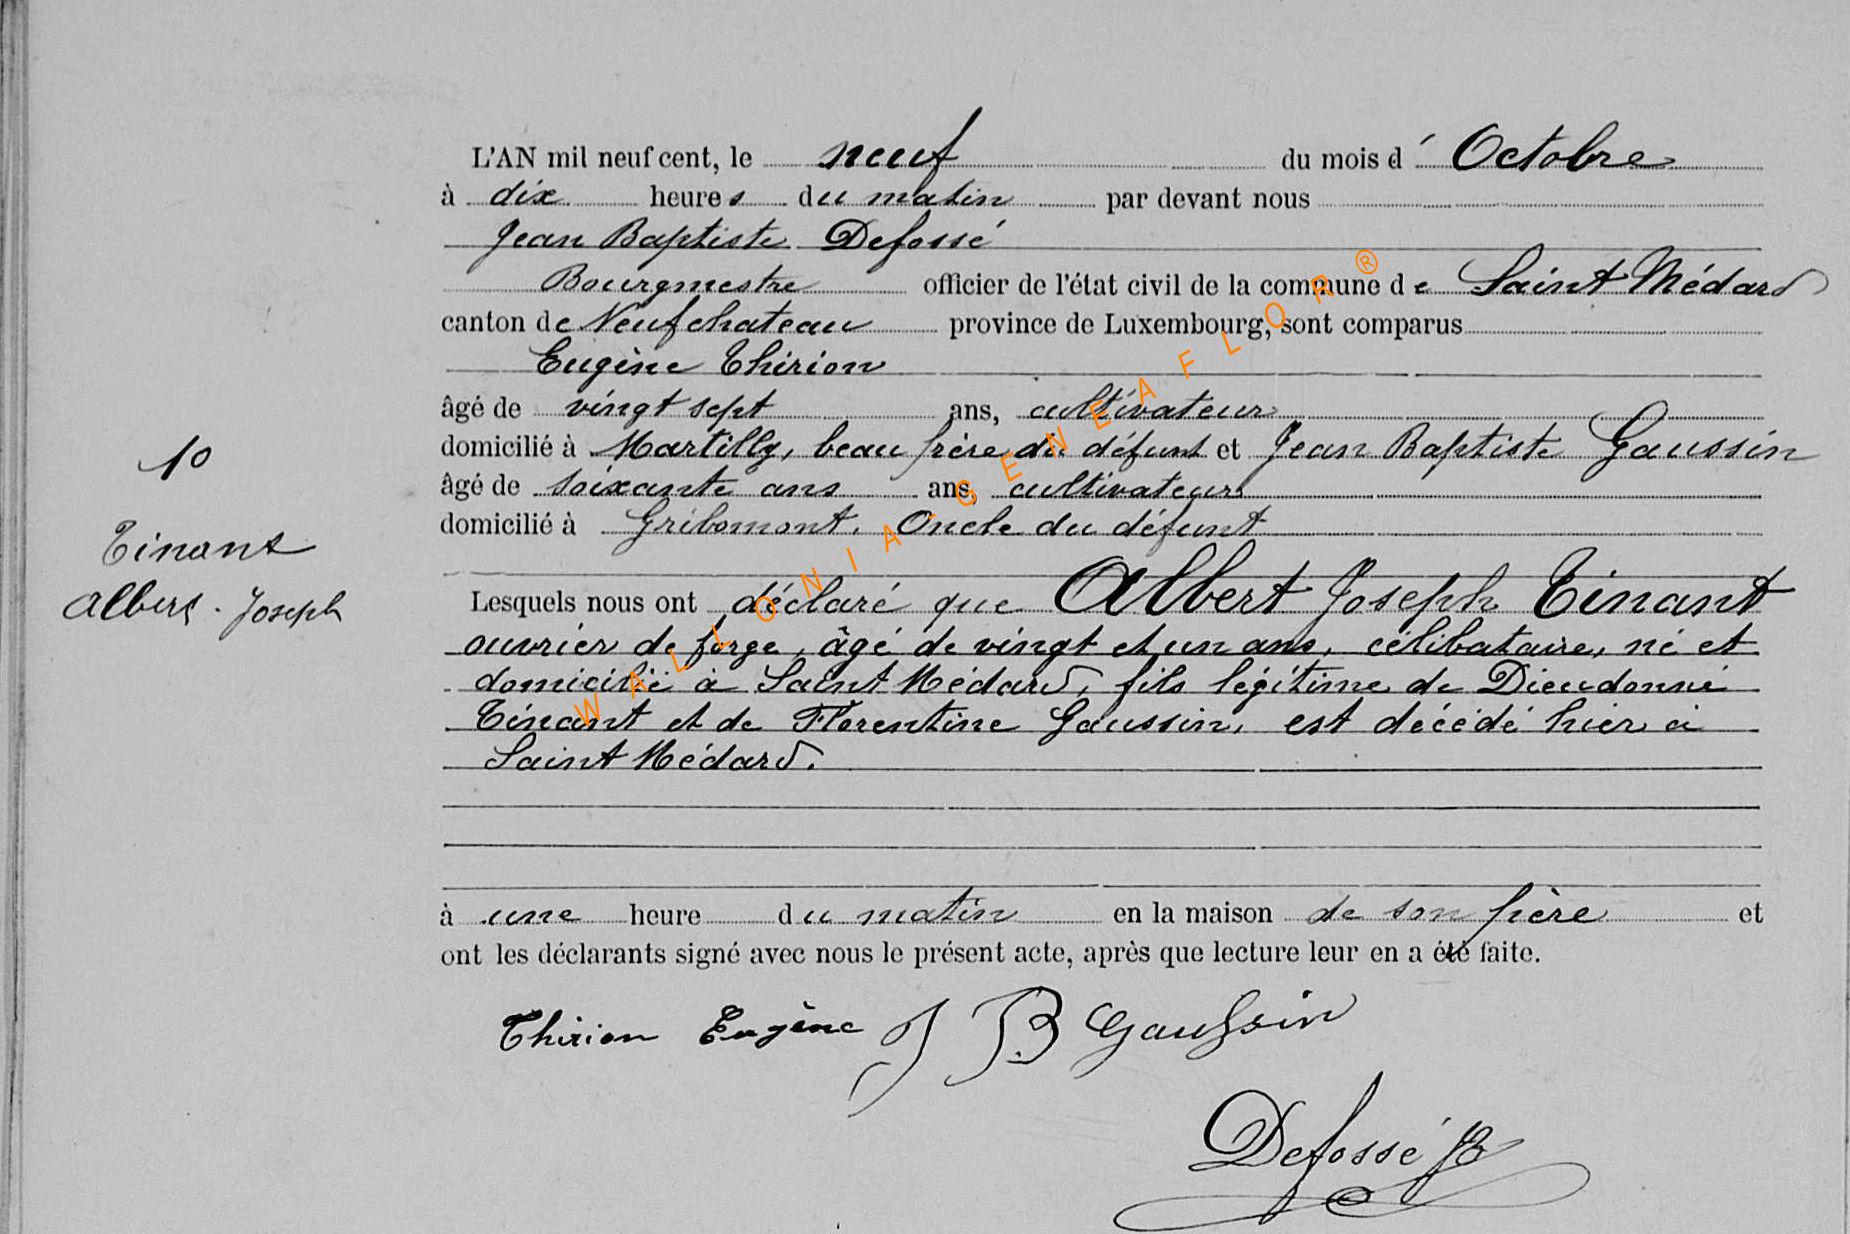 L'AN mil neuf cent, le neuf du mois d' Octobre
à dix heures du matin par devant nous
Jean Baptiste Defossé
Bourgmestre officier de l'état civil de la commune de Saint Médard
canton de Neufchateau province de Luxembourg, sont comparus
Eugène Thirion
âgé de vingt sept ans, cultivateur
domicilié à Martilly, beau frère du défunt et Jean Baptiste Gaussin
âgé de soixante ans ans, cultivateur
domicilié à Gribomont, Oncle du défunt
10
Tinant
Albert-Joseph
Lesquels nous ont déclaré que Albert Joseph Tinant
ouvrier de forge, âgé de vingt et un ans, célibataire, né et
domicilié à Saint Médard, fils légitime de Dieudonné
Tinant et de Florentine Gaussin, est décédé hier à
Saint Médard.
à une heure du matin en la maison de son père et
ont les déclarants signé avec nous le présent acte, après que lecture leur en a été faite.
Thirion Eugène J B Gaussin
Defossé JB
WALLONIA-GENEAFLOR®